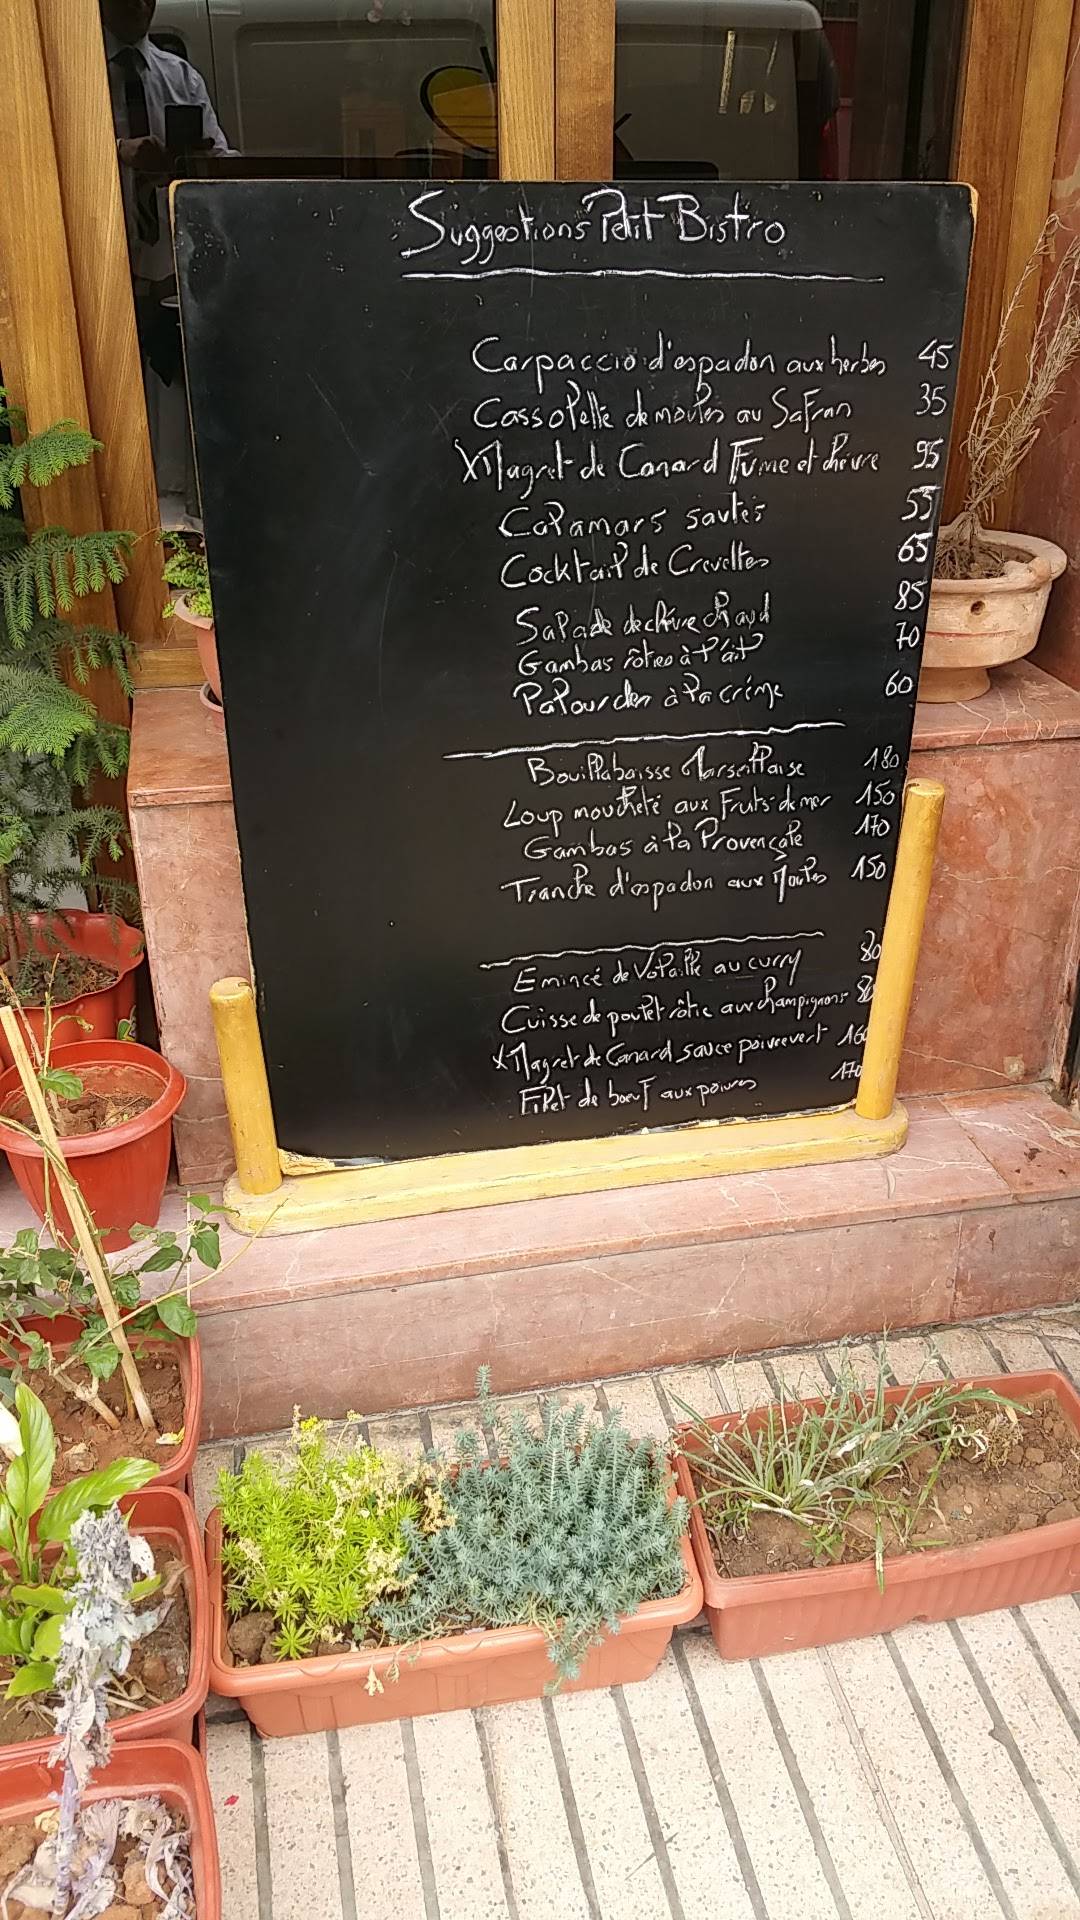 Suggestions Petit Bistro
Carpaccio d'espadon aux herbes 45
Cassolette de moules au Safran 35
X Magret de Canard Fumé et chèvre 95
Calamars sautés 55
Cocktail de Crevettes 65
Salade de chèvre chaud 85
Gambas rôties à l'ail 70
Palourdes à la crème 60
Bouillabaisse Marseillaise 180
Loup moucheté aux Fruits de mer 150
Gambas à la Provençale 170
Tranche d'espadon aux Moules 150
Emincé de Volaille au curry 80
Cuisse de poulet rôtie aux champignons 80
X Magret de Canard sauce poivre vert 160
Filet de boeuf aux poivres 170